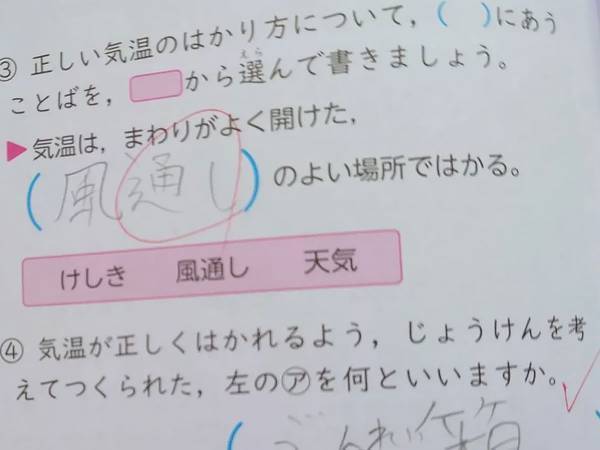 ③ 正しい気温のはかり方について，( )にあう
ことばを， から選んで書きましょう。
えら
▶気温は，まわりがよく開けた，
(風通し)のよい場所ではかる。
けしき 風通し 天気
④ 気温が正しくはかれるよう，じょうけんを考
えてつくられた，左の㋐を何といいますか。